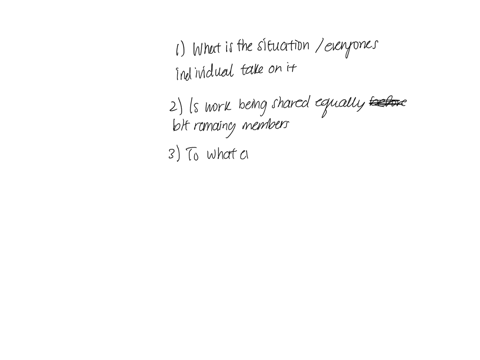 1) What is the situation / everyones
individual take on it
2) Is work being shared equally before
btt remaing members
3) To what a